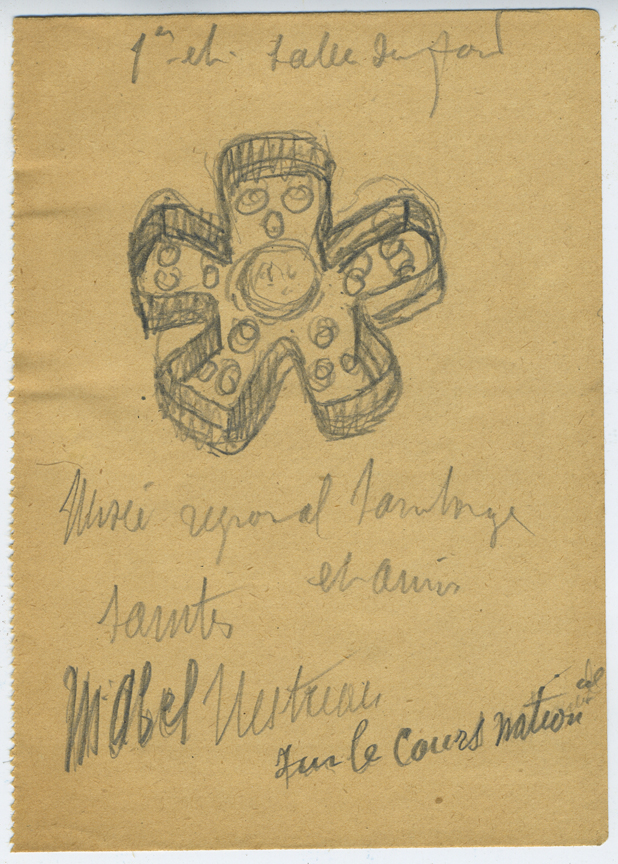 1er et. salle du fond
Musée regional Saintonge
et aunis
Saintes
M Abel Mestreau
sur le cours national